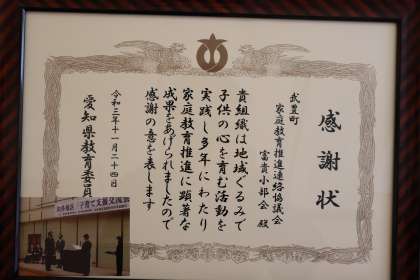 感謝状
武豊町
家庭教育推進連絡協議会
富貴小部会 殿
貴組織は地域ぐるみで
子供の心を育む活動を
実践し多年にわたり
家庭教育推進に顕著な
成果をあげられましたので
感謝の意を表します
令和三年十一月二十四日
愛知県教育委員
子育て支援交流